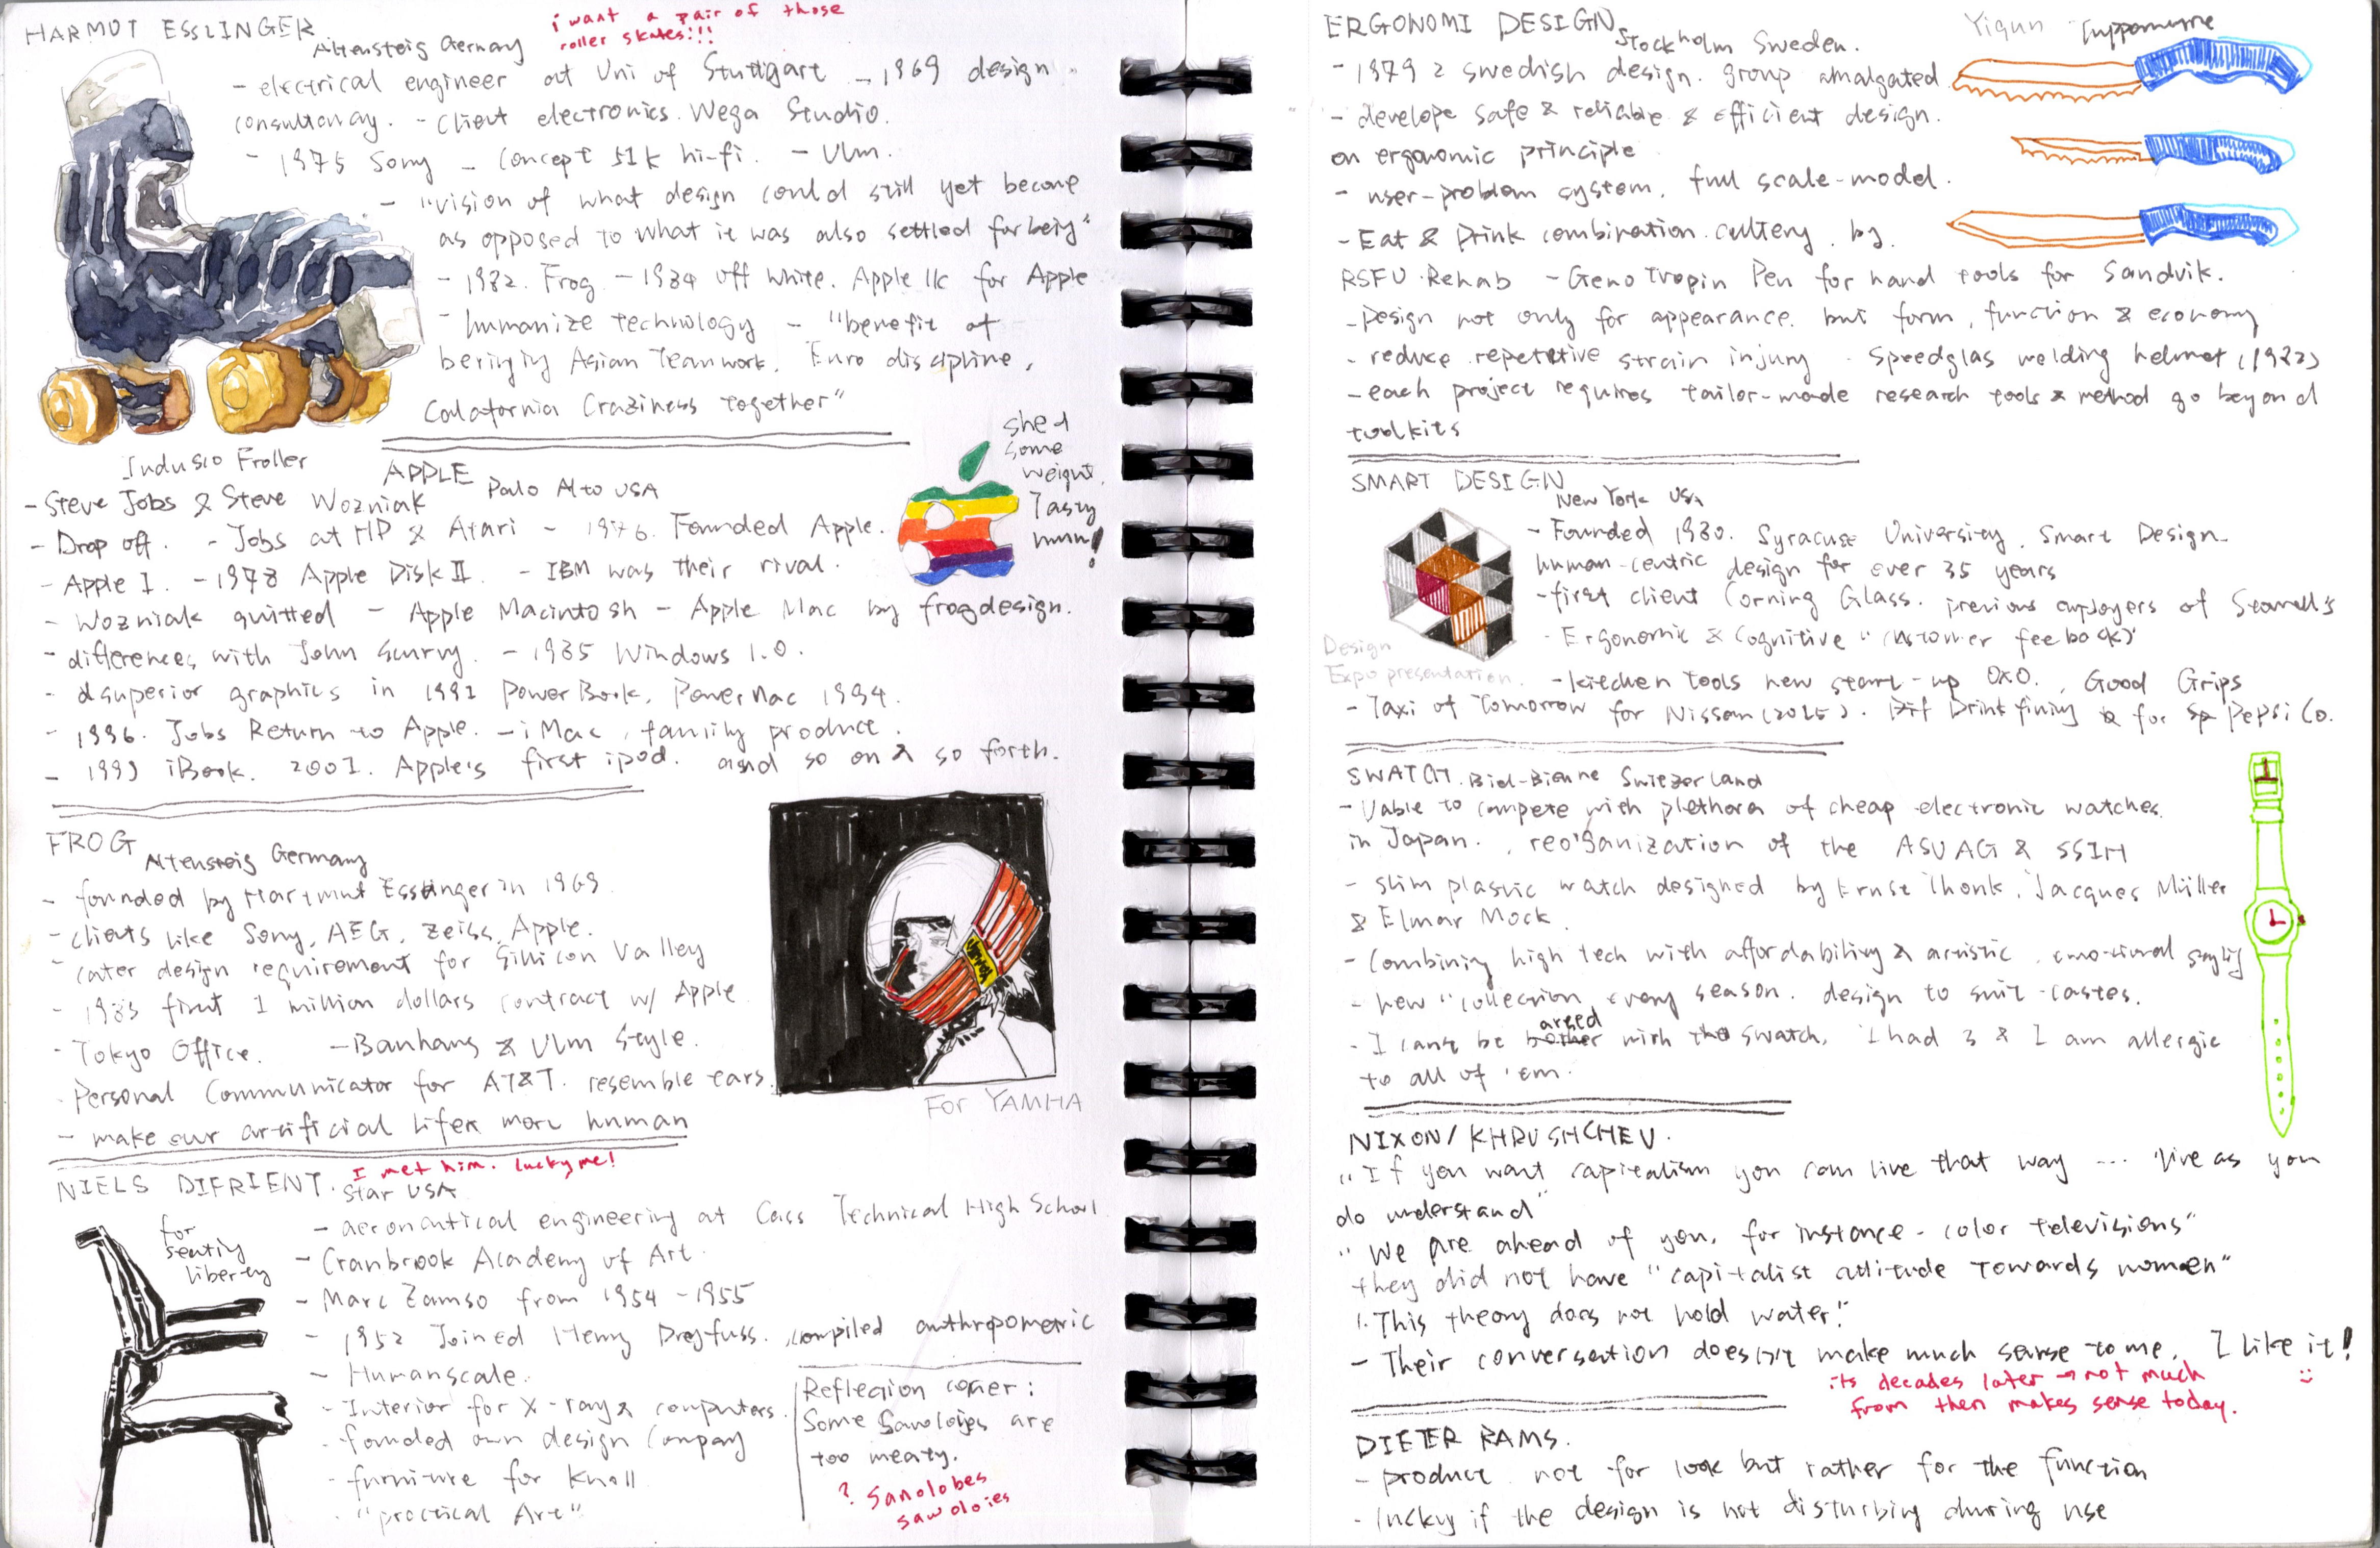 HARMUT ESSLINGER
Altensteig Germany
i want a pair of those
roller skates!!!
- electrical engineer at Uni of Stuttgart - 1969 design
consultancy. - Client electronics. Wega Studio.
- 1975 Sony - Concept 51k hi-fi. - Ulm.
- "vision of what design could still yet become
as opposed to what it was also settled for being"
- 1982. Frog. - 1984 off white. Apple IIc for Apple
- humanize technology - "benefit of
bringing Asian Teamwork, Euro discipline,
Calafornia Craziness together"
Indusio Froller
APPLE
Palo Alto USA
shed
some
weight.
Tasty
hmm!
- Steve Jobs & Steve Wozniak
- Drop off. - Jobs at HP & Atari - 1976. Founded Apple.
- Apple I. - 1978 Apple Disk II. - IBM was their rival.
- Wozniak quitted - Apple Macintosh - Apple Mac by frogdesign.
- differences with John - 1985 Windows 1.0.
- dsuperior graphics in 1991 PowerBook, PowerMac 1994.
- 1996. Jobs Return to Apple. - iMac, family product.
- 1999 iBook. 2001. Apple's first ipod. and so on & so forth.
FROG
Altensteig Germany
- founded by Hartmut Esslinger in 1969.
- clients like Sony, AEG, Zeiss, Apple.
- cater design requirement for Sillicon Valley
- 1983 first 1 million dollars contract w/ Apple
- Tokyo Office. - Bauhaus & Ulm Style.
- Personal Communicator for AT&T. resemble ears.
- make our artificial lifes more human
For YAMHA
NIELS DIFRIENT.
I met him. lucky me!
Star USA
for
seating
liberty
- aeronautical engineering at Cass Technical High School
- Cranbrook Academy of Art.
- Marc Zamso from 1954 - 1955
- 1952 Joined Henry Dreyfuss. compiled anthropometric
- Humanscale.
- Interior for X-ray & computers.
- founded own design Company
- furniture for Knoll
- "practical Art"
Reflection corner:
Some Sanoloies are
too meaty.
? Sanolobes
sawoloies
ERGONOMI DESIGN
Stockholm Sweden.
Yiqun
- 1979 2 swedish design. group amalgated
- develope safe & reliable & efficient design.
on ergonomic principle
- user-problem system. full scale-model.
- Eat & Drink combination. cultery. by.
RSFU. Rehab - Geno Tropin Pen for hand tools for Sandvik.
- Design not only for appearance. but form, function & economy
- reduce repetitive strain injury - Speedglas welding helmet (1982)
- each project requires tailor-made research tools & method go beyond
toolkits
SMART DESIGN
New York USA
- Founded 1980. Syracuse University, Smart Design
human-centric design for over 35 years
- first client Corning Glass. previous employers of
- Ergonomic & Cognitive "customer feeback)"
Design
Expo presentation.
- kitchen tools new start-up OXO., Good Grips
- Taxi of Tomorrow for Nissan (2015). for PepsiCo.
SWATCH. Biel-Bienne Switzerland
- Uable to compete with plethora of cheap electronic watches.
in Japan. , reorganization of the ASUAG & SSIH
- slim plastic watch designed by Ernst Thonk, Jacques Müller
& Elmar Mock.
- Combining high tech with affordability & artistic, emotional styling
- new "collection, every season. design to suit tastes.
- I can't be arsed with the swatch. I had 3 & I am allergic
to all of 'em.
NIXON/ KHRUSHCHEV.
"If you want capitealism you can live that way ... live as you
do understand"
"We are ahead of you, for instance - color televisions"
they did not have "capitalist attitude towards women"
"This theory does not hold water!"
- Their conversation doesn't make much sense to me. I like it!
its decades later → not much
from then makes sense today.
DIETER RAMS.
- product not for look but rather for the function
- lucky if the design is not disturbing during use